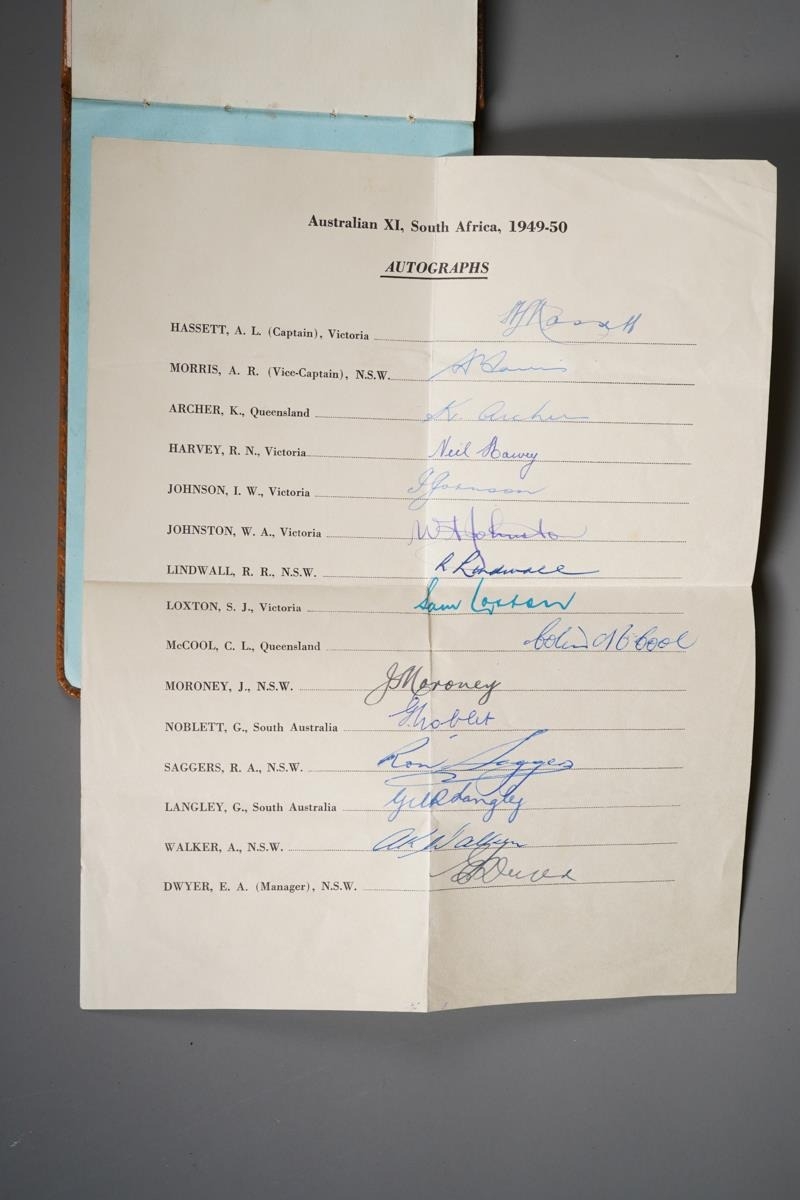 Australian XI, South Africa, 1949-50
AUTOGRAPHS
HASSETT, A. L. (Captain), Victoria A L Hassett
MORRIS, A. R. (Vice-Captain), N.S.W. A Morris
ARCHER, K., Queensland K. Archer
HARVEY, R. N., Victoria Neil Harvey
JOHNSON, I. W., Victoria I Johnson
JOHNSTON, W. A., Victoria W A Johnston
LINDWALL, R. R., N.S.W. R Lindwall
LOXTON, S. J., Victoria Sam Loxton
McCOOL, C. L., Queensland Colin McCool
MORONEY, J., N.S.W. J Moroney
NOBLETT, G., South Australia G Noblet
SAGGERS, R. A., N.S.W. Ron Saggers
LANGLEY, G., South Australia Gil Langley
WALKER, A., N.S.W. AK Walker
DWYER, E. A. (Manager), N.S.W. Dwyer